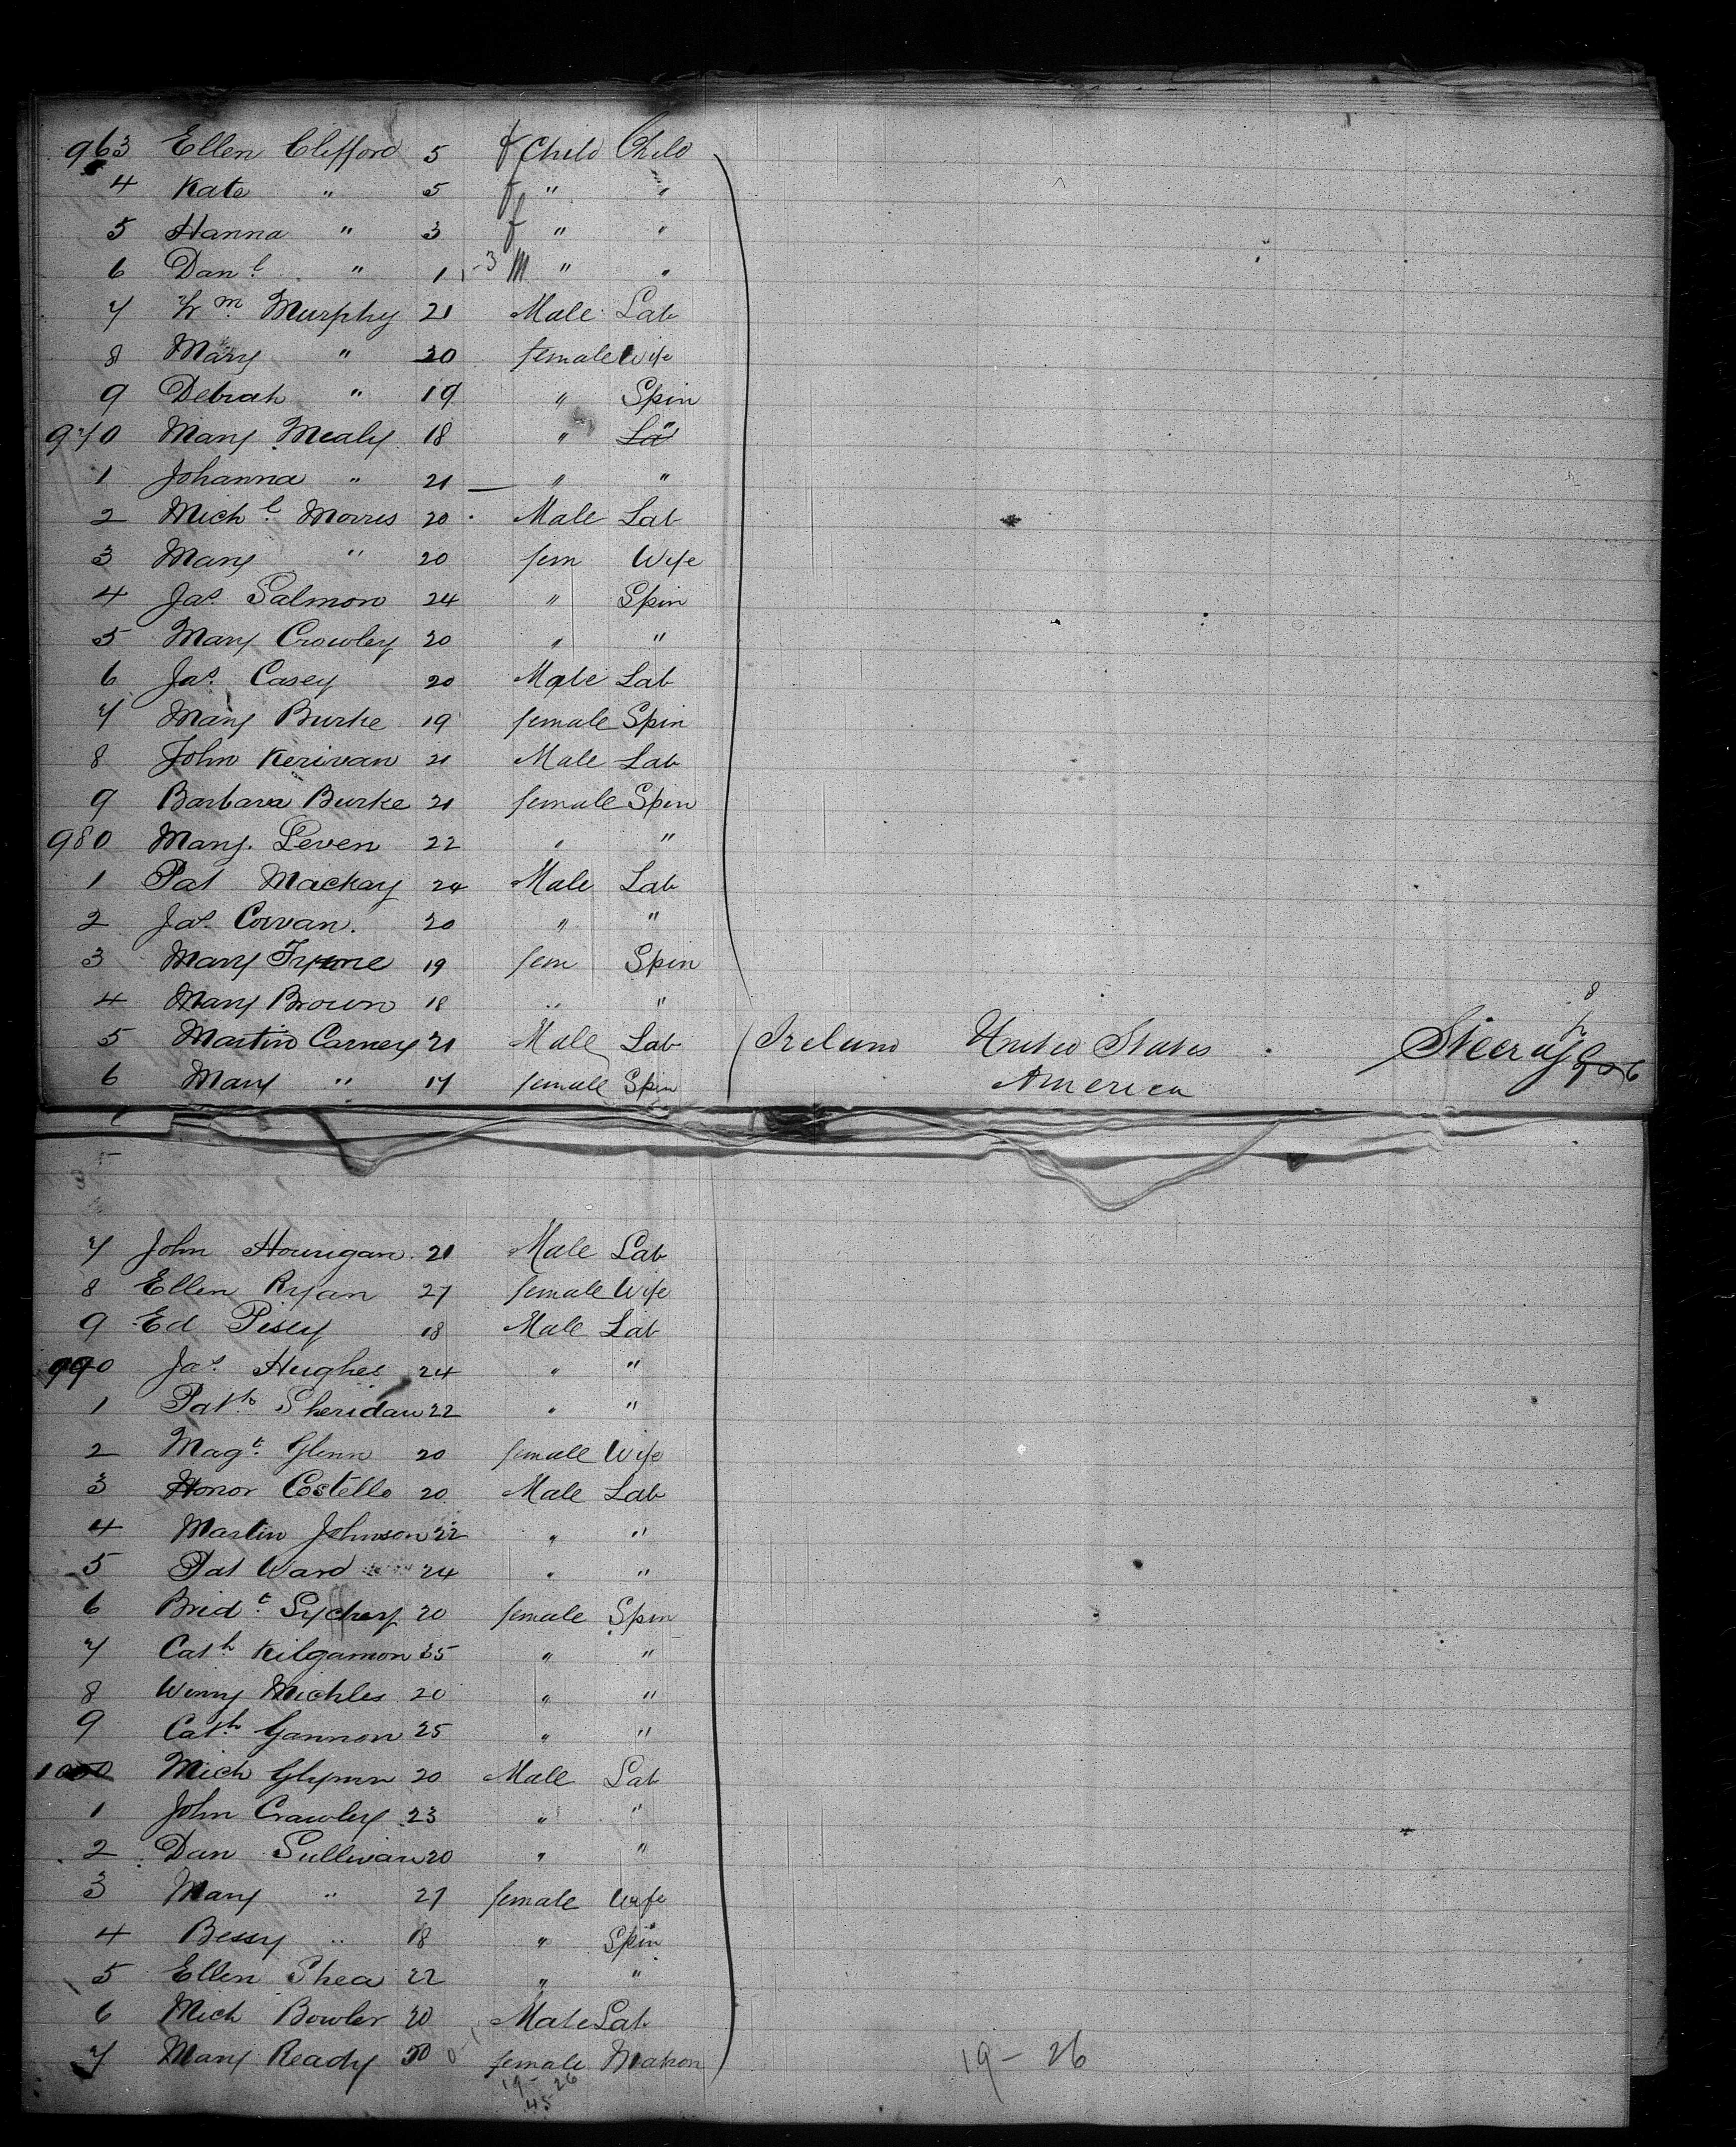 963 Ellen Clifford 5 f Child Child
4 Kate " 5 f " "
5 Hanna " 3 f " "
6 Danl " 1 -3 m " "
7 Wm Murphy 21 Male Lab
8 Mary " 20 female Wife
9 Debrah " 19 " Spin
970 Mary Mealy 18 " "
1 Johanna " 21 " "
2 Michl Morris 20 Male Lab
3 Mary " 20 fem Wife
4 Jas Salmon 24 " Spin
5 Mary Crowley 20 " "
6 Jas Casey 20 Male Lab
7 Mary Burke 19 female Spin
8 John Kerivan 21 Male Lab
9 Barbara Burke 21 female Spin
980 Mary Leven 22 " "
1 Pat Mackay 24 Male Lab
2 Jas Corvan. 20 " "
3 Mary 19 fem Spin
4 Mary Brown 18 " "
5 Martin Carney 21 Male Lab Ireland United States Steerage
6 Mary " 17 female Spin America
7 John Hourigan 21 Male Lab
8 Ellen Ryan 27 female Wife
9 Ed 18 Male Lab
990 Jas Hughes 24 " "
1 Patk Sheridan 22 " "
2 Magt Glenn 20 female Wife
3 Honor Costello 20 Male Lab
4 Martin Johnson 22 " "
5 Pat Ward 24 " "
6 Bridt 20 female Spin
7 Cath Kilgamon 35 " "
8 Winny Michles 20 " "
9 Cath Gannon 25 " "
1000 Mich Glynn 20 Male Lab
1 John Crawley 23 " "
2 Dan Sullivan 20 " "
3 Mary " 27 female Wife
4 Bessy " 18 " Spin
5 Ellen Shea 22 " "
6 Mich Bowler 20 Male Lab
7 Mary Ready female Matron
19 - 26 19 - 26
45